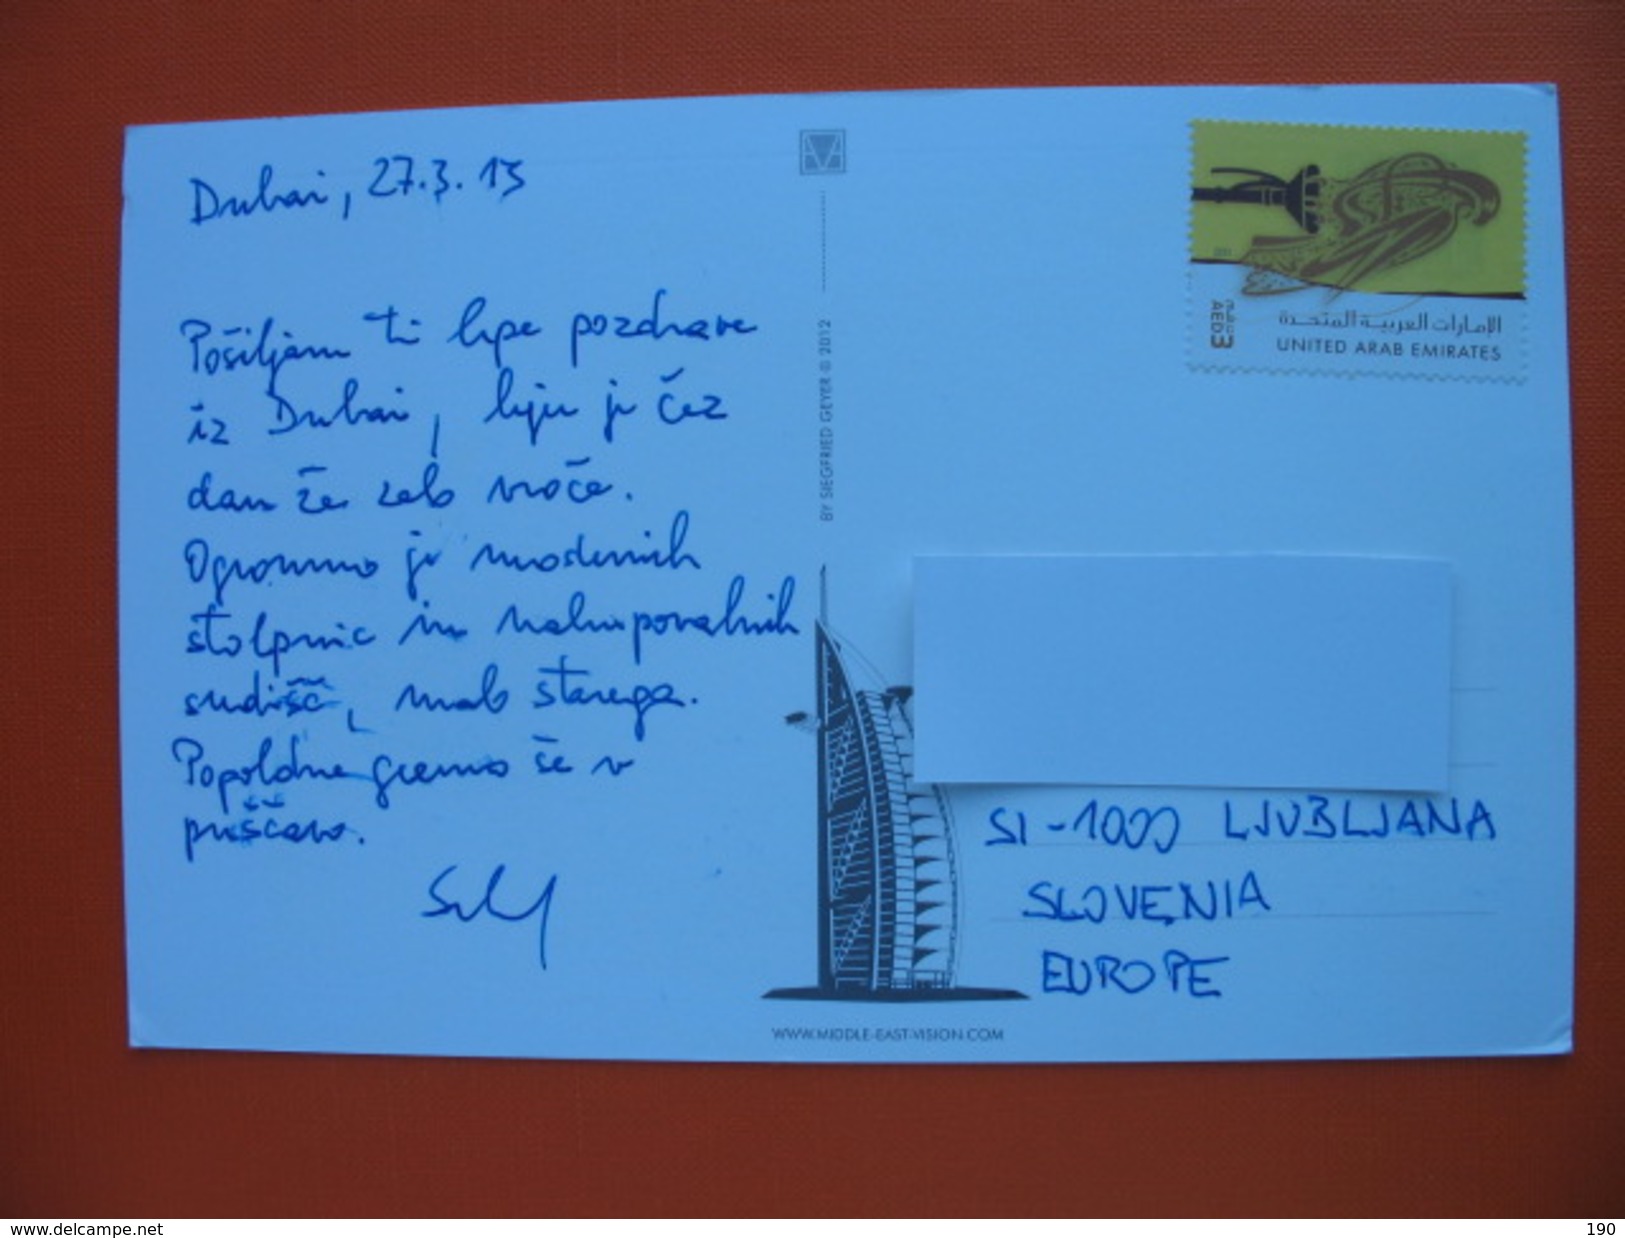 Dubai, 27.3.13
Pošiljam ti lepe pozdrave
iz Dubai, kjer je čez
dan že zelo vroče.
Ogromno je modernih
stolpnic in nakupovalnih
središč, malo starega.
Popoldne gremo še v
puščavo.
BY SIEGFRIED GEYER © 2012
WWW.MIDDLE-EAST-VISION.COM
AED3
الإمارات العربية المتحدة
UNITED ARAB EMIRATES
SI-1000 LJUBLJANA
SLOVENIA
EUROPE
www.delcampe.net
190